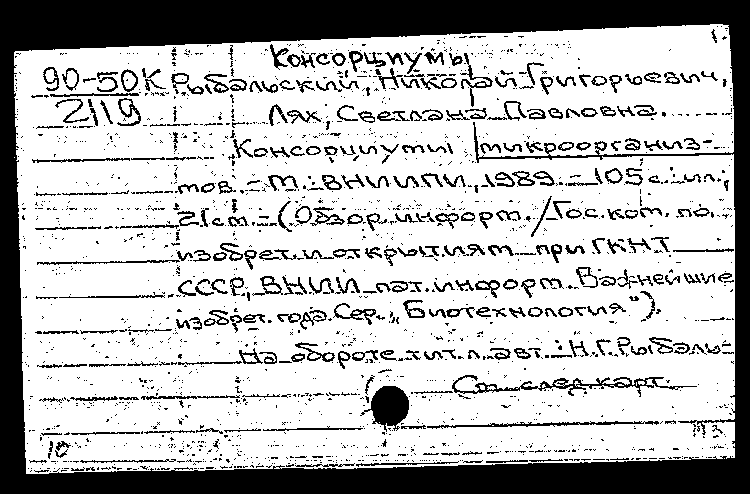 1.
Консорциумы
90-50К Рыбальский, Николай Григорьевич,
2119 Лях, Светлана Павловна.
Консорциумы микроорганиз-
мов. - М.: ВНИИПИ, 1989. - 105 с.: ил.;
21 см. - (Обзор. информ. / Гос. ком. по
изобрет. и открытиям при ГКНТ
СССР, ВНИИ пат. информ. Важнейшие
изобрет. года. Сер. „Биотехнология").
На обороте тит. л. авт.: Н.Г. Рыбаль-
См. след. карт.
10